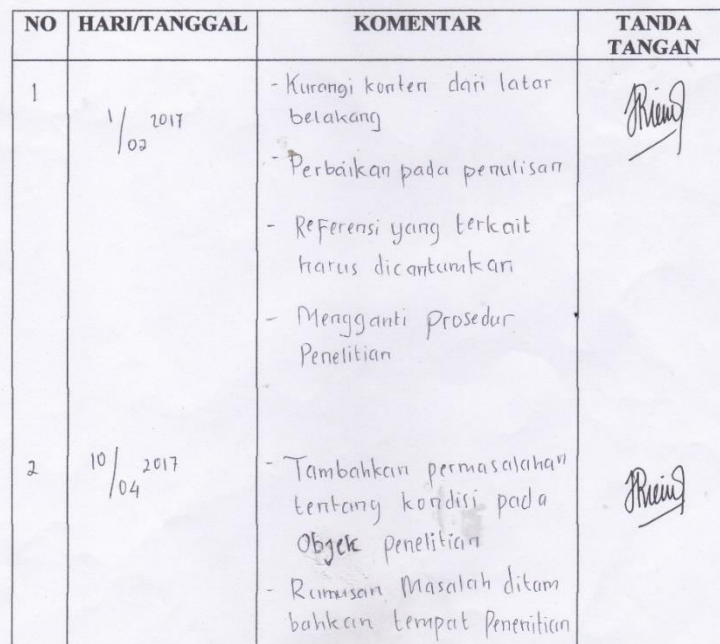 NO HARI/TANGGAL KOMENTAR TANDA TANGAN
1
1/02 2017
- Kurangi konten dari latar
belakang
- Perbaikan pada penulisan
- Referensi yang terkait
harus dicantumkan
- Mengganti Prosedur
Penelitian
2
10/04 2017
- Tambahkan permasalahan
tentang kondisi pada
Objek penelitian
- Rumusan Masalah ditam
bahkan tempat Penenitian